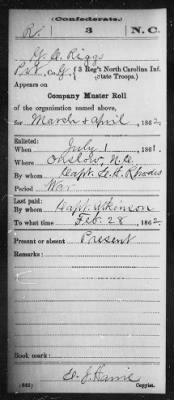 (Confederate.)
R. 3 N.C.
G. A. Riggs
Pvt, Co. G, { 3 Reg't North Carolina Inf.
(State Troops.)
Appears on
Company Muster Roll
of the organization named above,
for March & April, 1862.
Enlisted:
When July 1, 1861.
Where Onslow, N.C.
By whom Capt. E.H. Rhodes
Period War
Last paid:
By whom Capt. Atkinson
To what time Feb. 28, 1862.
Present or absent Present
Remarks:
Book mark:
(642) Copyist.